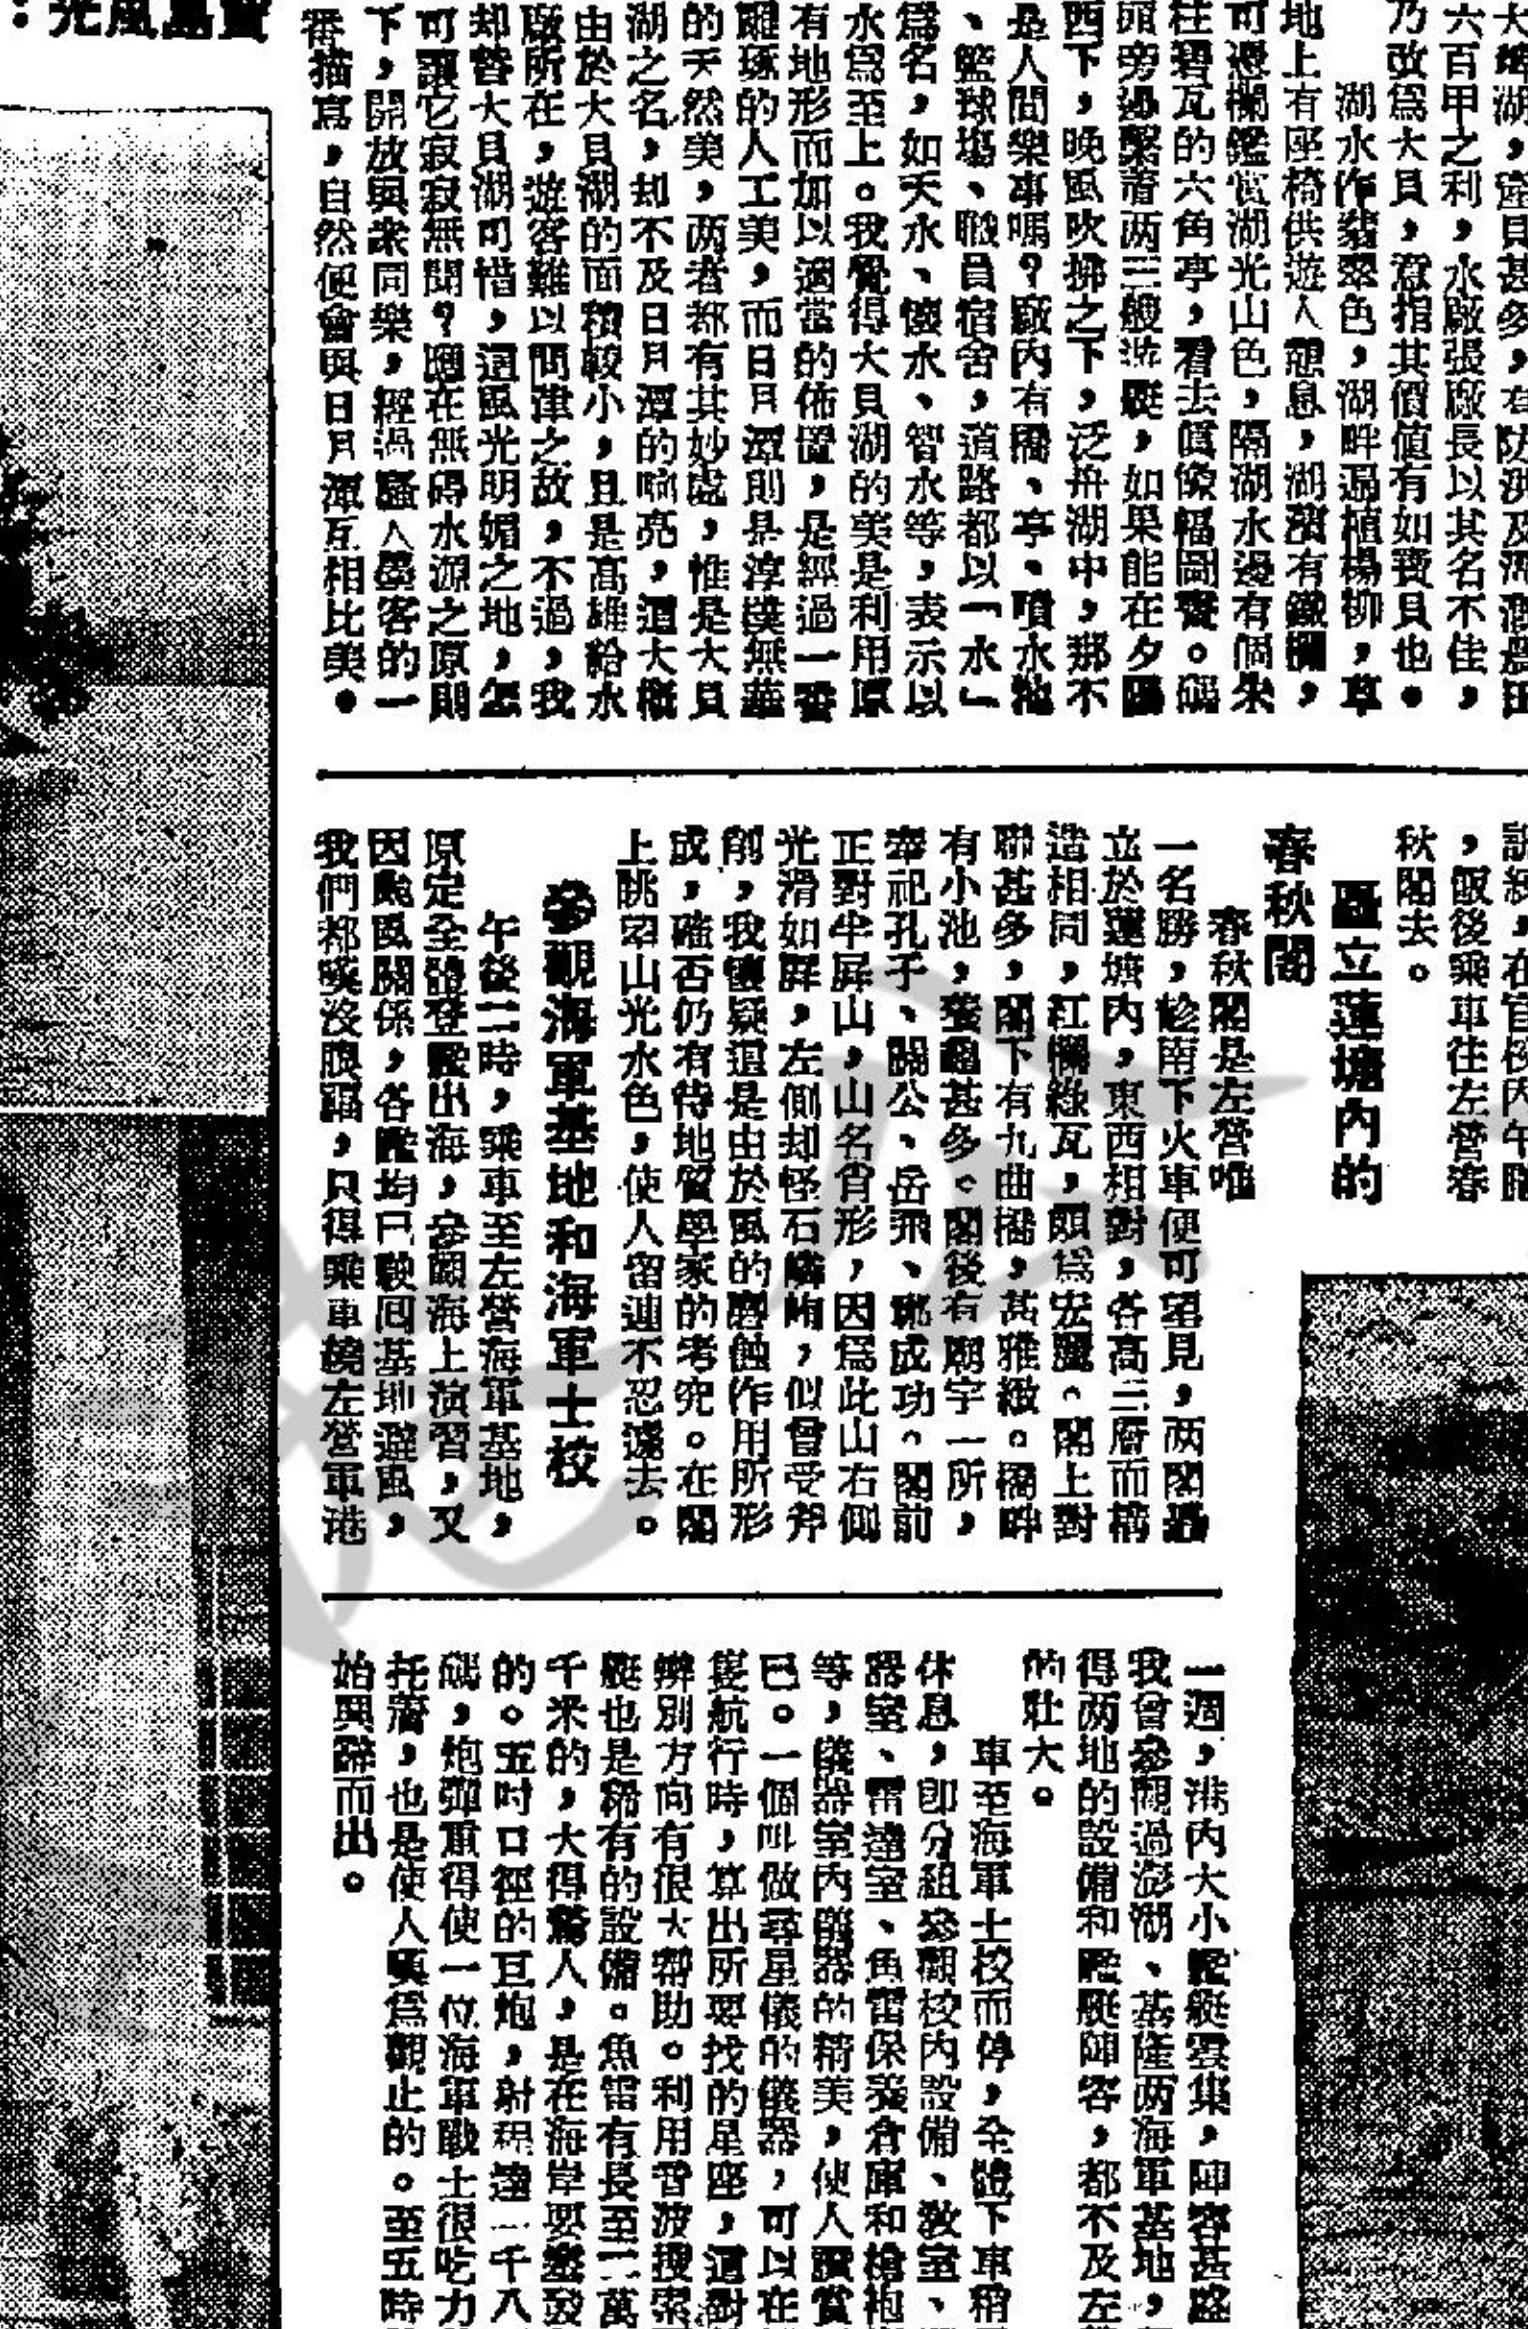 大埤湖，產貝甚多，有防洪及灌漑農田
六百甲之利，水廠張廠長以其名不佳，
乃改爲大貝，意指其價值有如寶貝也。
湖水作翡翠色，湖畔遍植楊柳，草
地上有座椅供遊人憩息，湖濱有鐵欄，
可憑欄鑑賞湖光山色，隔湖水邊有個朱
柱碧瓦的六角亭，看去眞像幅圖畫。碼
頭旁邊繫着两三艘遊艇，如果能在夕陽
西下，晚風吹拂之下，泛舟湖中，那不
是人間樂事嗎？廠內有橋、亭、噴水池
、籃球塲、職員宿舍，道路都以「水」
爲名，如天水、懷水、智水等，表示以
水爲至上。我覺得大貝湖的美是利用原
有地形而加以適當的佈置，是經過一番
雕琢的人工美，而日月潭則是淳樸無華
的天然美，两者都有其妙處，惟是大貝
湖之名，却不及日月潭的响亮，這大概
由於大貝湖的面積較小，且是高雄給水
廠所在，遊客難以問津之故，不過，我
却替大貝湖可惜，這風光明媚之地，怎
可讓它寂寂無聞？應在無碍水源之原則
下，開放與衆同樂，經過騷人墨客的一
番描寫，自然便會與日月潭互相比美。
寶島風光：
，飯後乘車往左營春
秋閣去。
矗立蓮塘內的
春秋閣
春秋閣是左營唯
一名勝，趁南下火車便可望見，两閣矗
立於蓮塘內，東西相對，各高三層而構
造相同，紅欄綠瓦，頗爲宏麗。閣上對
聯甚多，閣下有九曲橋，甚雅緻。橋畔
有小池，養龜甚多。閣後有廟宇一所，
奉祀孔子、關公、岳飛、鄭成功。閣前
正對半屏山，山名肖形，因爲此山右側
光滑如屏，左側却怪石嶙峋，似曾受斧
削，我懷疑這是由於風的磨蝕作用所形
成，確否仍有待地質學家的考究。在閣
上眺望山光水色，使人留連不忍遽去。
參觀海軍基地和海軍士校
午後二時，乘車至左營海軍基地，
原定全體登艦出海，參觀海上演習，又
因颱風關係，各艦均已駛回基地避風，
我們都嘆沒眼福，只得乘車繞左營軍港
一週，港內大小艦艇雲集，陣容甚盛
我會參觀過澎湖、基隆两海軍基地，
得两地的設備和艦艇陣容，都不及左
的壯大。
車至海軍士校而停，全體下車稍
休息，即分組參觀校內設備、敎室、
器室、雷達室、魚雷保養倉庫和槍砲
等，儀器室內儀器的精美，使人讚賞
已。一個叫做尋星儀的儀器，可以在
隻航行時，算出所要找的星座，這對
辨別方向有很大帮助。利用音波搜索
艇也是稀有的設備。魚雷有長至二萬
千米的，大得驚人，是在海岸要塞發
的。五吋口徑的巨炮，射程遠一千八
碼，炮彈重得使一位海軍戰士很吃力
托着，也是使人嘆爲觀止的。至五時
始興辭而出。